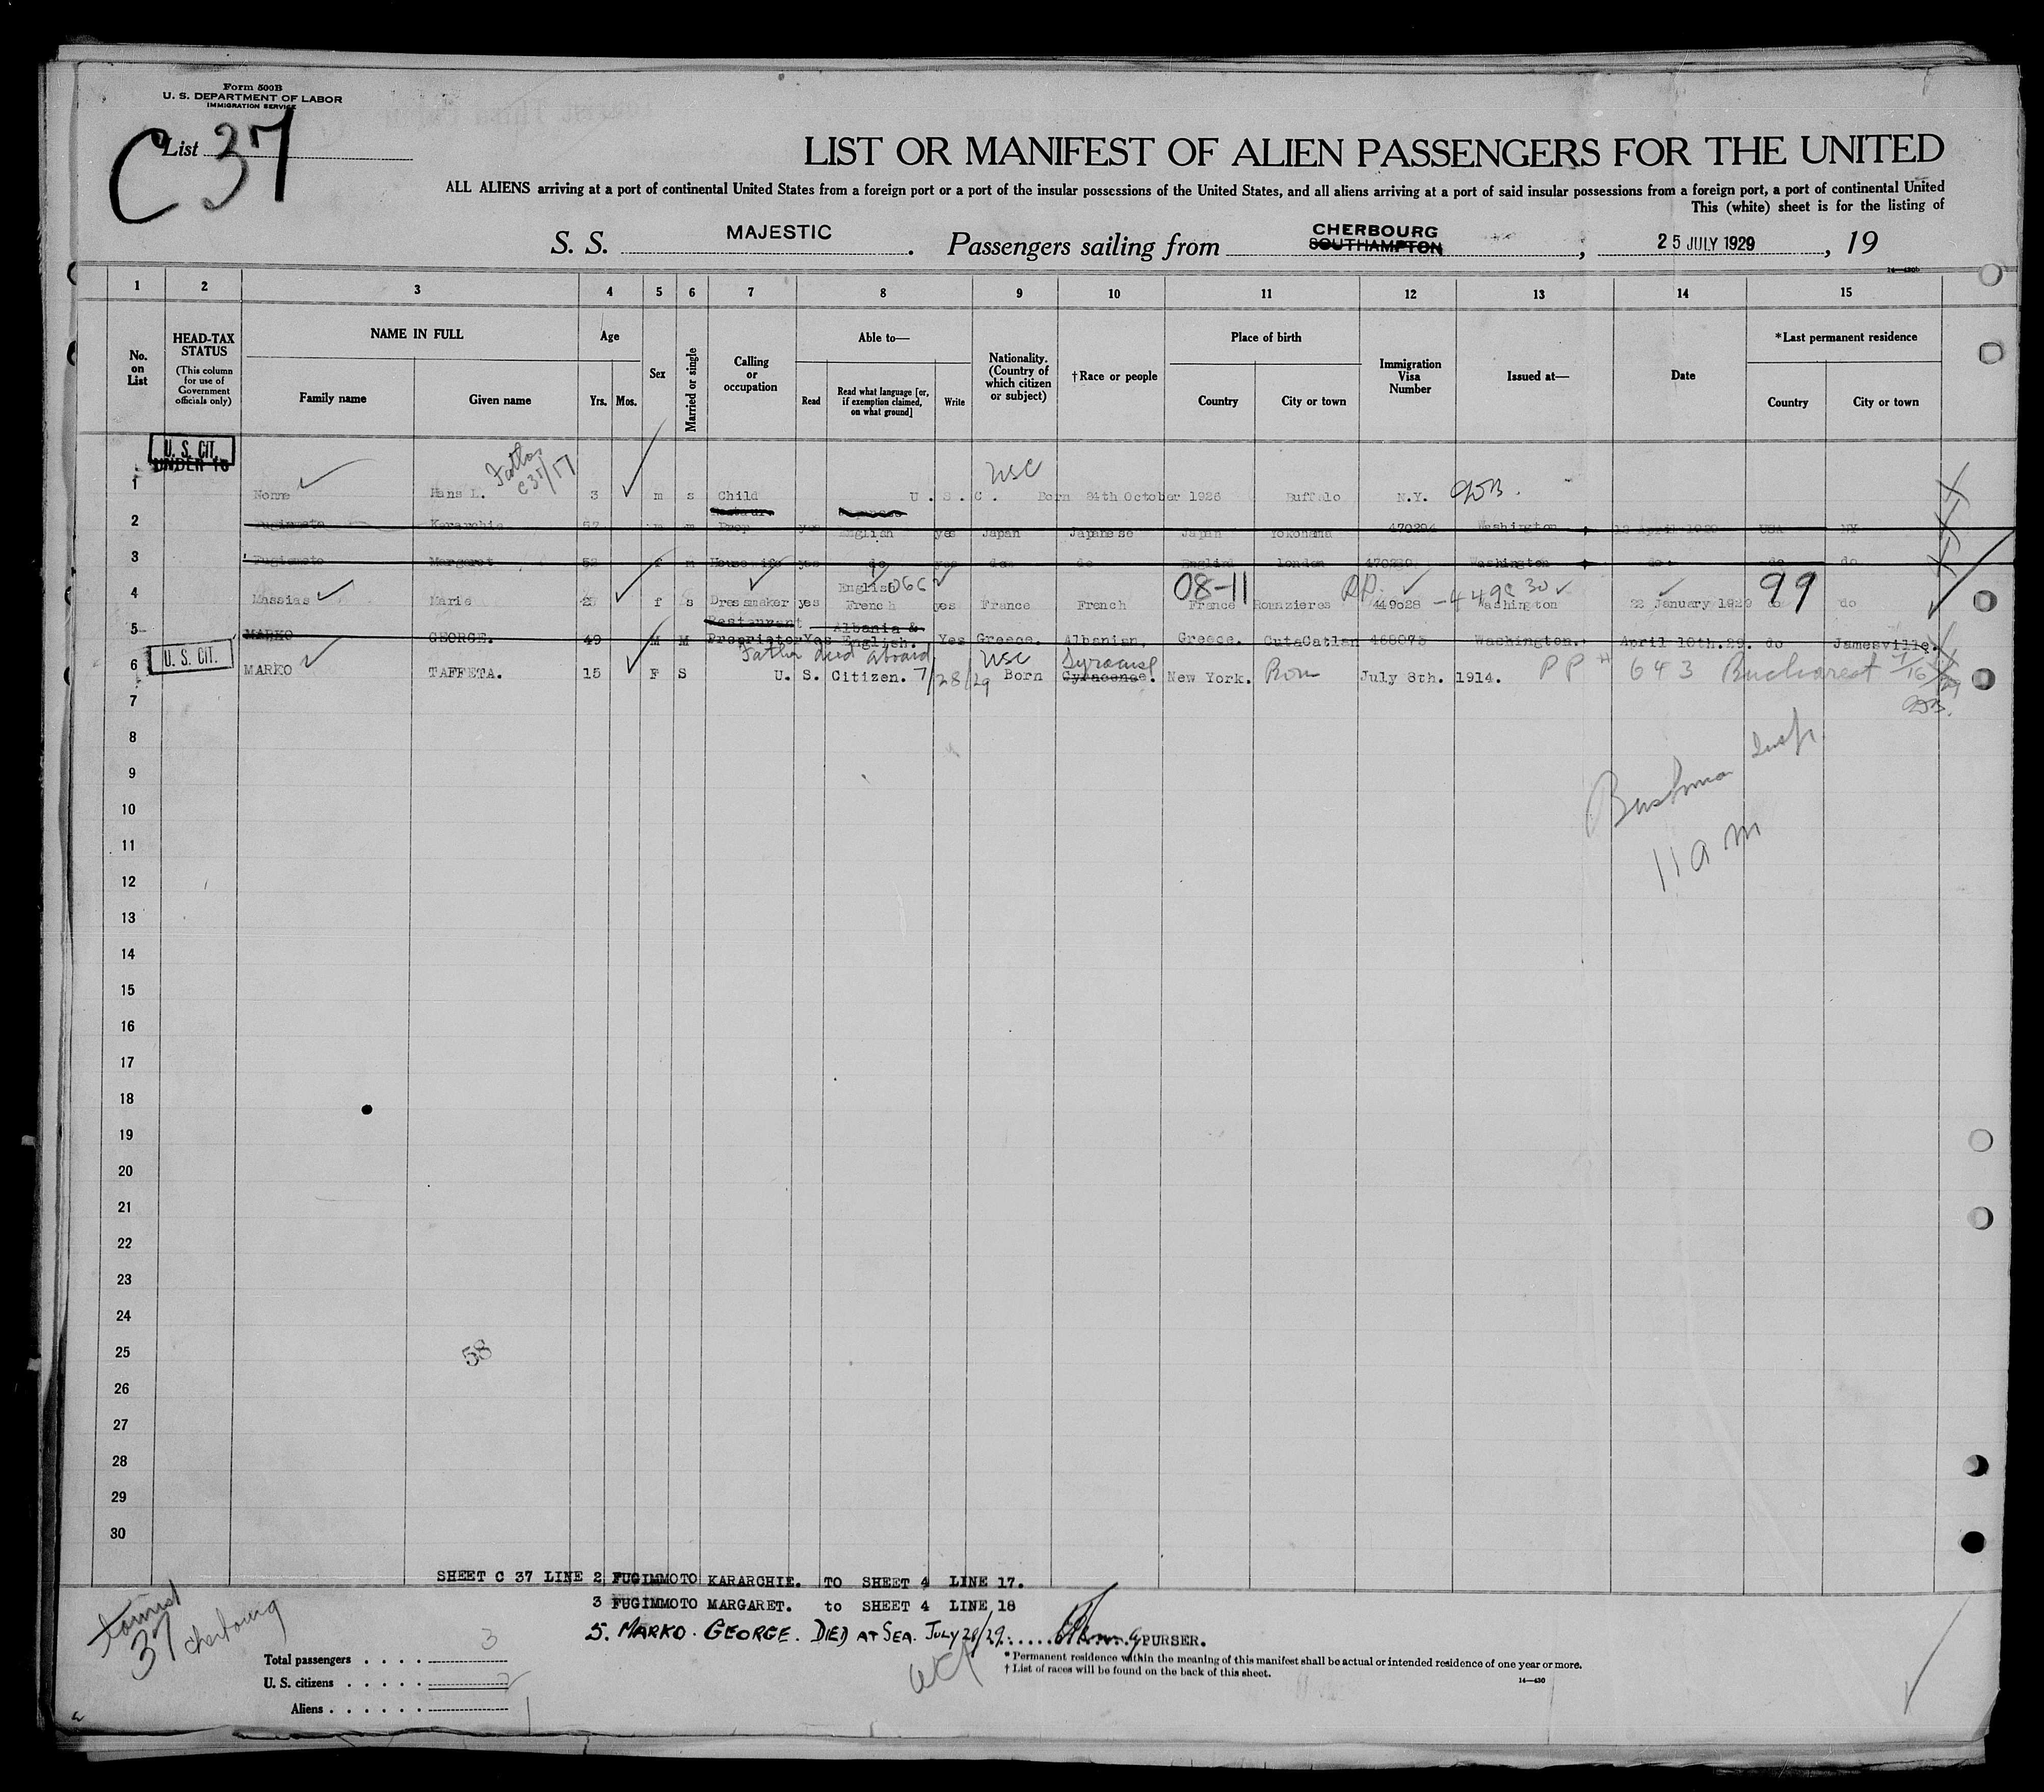 Form 500B
U. S. DEPARTMENT OF LABOR
IMMIGRATION SERVICE
List C 37
LIST OR MANIFEST OF ALIEN PASSENGERS FOR THE UNITED
ALL ALIENS arriving at a port of continental United States from a foreign port or a port of the insular possessions of the United States, and all aliens arriving at a port of said insular possessions from a foreign port, a port of continental United
This (white) sheet is for the listing of
S. S. MAJESTIC. Passengers sailing from CHERBOURG SOUTHAMPTON, 25 JULY 1929, 19
14—430b
1 2 3 4 5 6 7 8 9 10 11 12 13 14 15
No. on List
HEAD-TAX STATUS
(This column for use of Government officials only)
NAME IN FULL
Family name Given name
Age
Yrs. Mos.
Sex
Married or single
Calling or occupation
Able to—
Read Read what language [or, if exemption claimed, on what ground] Write
Nationality. (Country of which citizen or subject)
†Race or people
Place of birth
Country City or town
Immigration Visa Number
Issued at—
Date
*Last permanent residence
Country City or town
U. S. CIT.
UNDER 16
Father C37/17
USC
1 Hans L. 3 m s Child U. S. C. Born 24th October 1926 Buffalo N.Y.
2 Fugimoto Kararchie 57 m m Prop yes English yes Japan Japanese Japan Yokohama 470294 Washington 12 April 1929 USA NY
3 Fugimoto Margaret 52 f m Housewife yes do yes do do England London Washington do do do
066 08-11 PP. 30 99
4 Massias Marie 27 f s Dressmaker yes English French yes France French France Roumzieres 449028 Washington 22 January 1929 do do
5 MARKO GEORGE. 49 M M Restaurant Proprietor Yes Albania & English. Yes Greece. Albanian. Greece. CutaCatlan 468073 Washington. April 10th.29. do Jamesville.
Father died aboard 7/28/29
U. S. CIT.
USC Syracuse
6 MARKO TAFFETA. 15 F S U. S. Citizen. Born Cyracense. New York. Born July 8th. 1914. PP # 643 Bucharest 7/16/29
7
8
Bushman Insp.
9
10
11 11 am
12
13
14
15
16
17
18
19
20
21
22
23
24
25 58
26
27
28
29
30
SHEET C 37 LINE 2 FUGIMMOTO KARARCHIE. TO SHEET 4 LINE 17.
3 FUGIMMOTO MARGARET. to SHEET 4 LINE 18
5. MARKO. GEORGE. DIED AT SEA. JULY 28/29. PURSER.
tourist
37 Cherbourg
Total passengers . . . . 3
U. S. citizens . . . . . 2
Aliens . . . . . . 1
* Permanent residence within the meaning of this manifest shall be actual or intended residence of one year or more.
† List of races will be found on the back of this sheet.
14—430